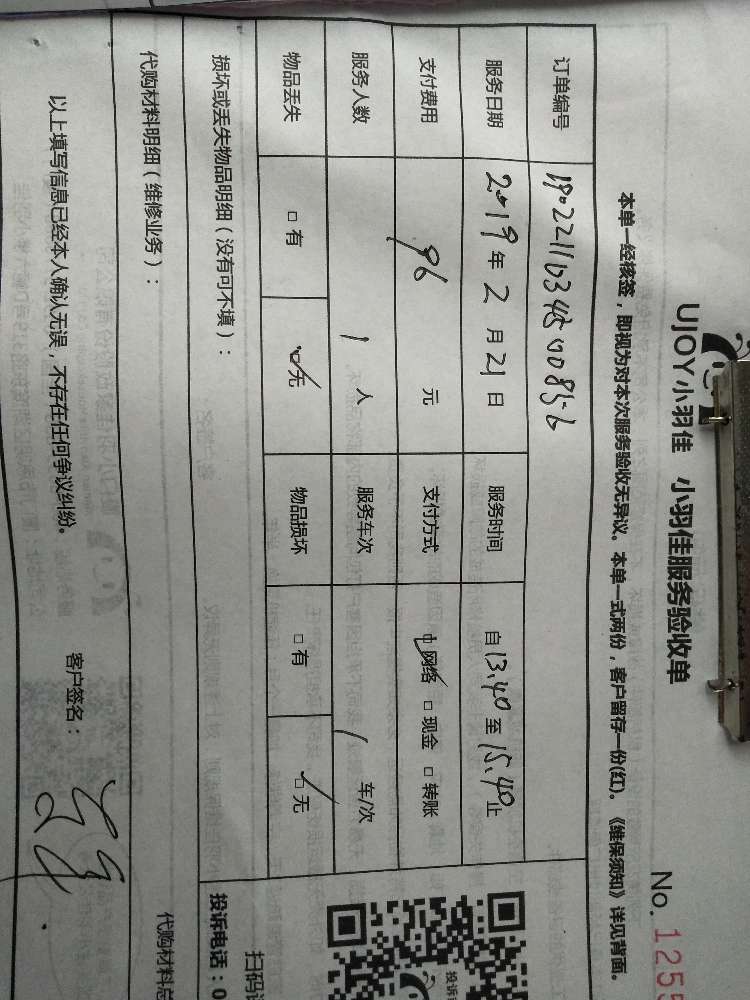 UJOY小羽佳 小羽佳服务验收单
No. 1255
本单一经核签，即视为对本次服务验收无异议。本单一式两份，客户留存一份(红)。《维保须知》详见背面。
订单编号
服务日期 2019 年 2 月 21 日 服务时间 自 13.40 至 15.40 止
支付费用 96 元 支付方式 网络 □ 现金 □ 转账
服务人数 1 人 服务车次 1 车/次
物品丢失 □ 有 □ 无 物品损坏 □ 有 □ 无
损坏或丢失物品明细（没有可不填）：
扫码
投诉电话：0
代购材料明细（维修业务）：
代购材料总
以上填写信息已经本人确认无误，不存在任何争议纠纷。 客户签名：